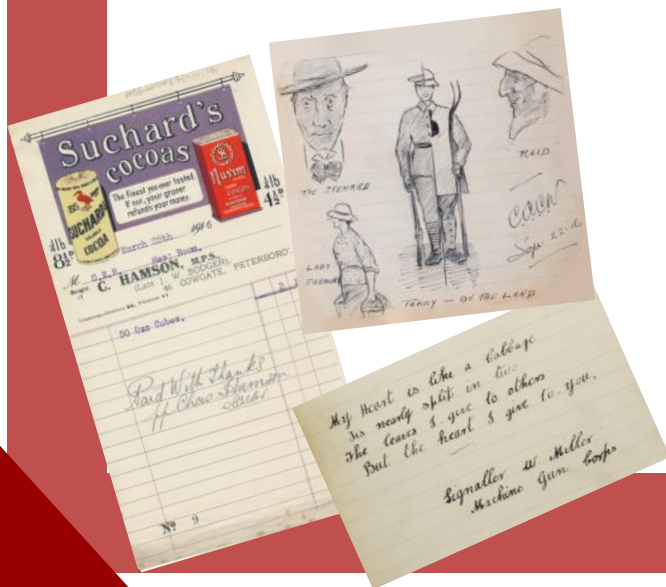 Suchard's
cocoas
The finest you ever tasted
If not, your grocer
refunds your money.
SUCHARD
COCOA
¼lb
8½ᴰ
¼lb
4½ᴰ
March 25th 1916
M G.E.R. Rest Room.
C. HAMSON, M.P.S.,
(Late J. W. BODGER),
45 COWGATE, PETERBORO'
50 Oxo Cubes.
Paid With Thanks
pp Chas Hamson
Nº 9
THE STEWARD
REID
LADY
TOMMY - OF THE LAND
Sep. 22nd
My Heart is like a Cabbage
Its nearly split in two
The leaves I give to others
But the heart I give to you.
Signaller W Miller
Machine Gun Corps